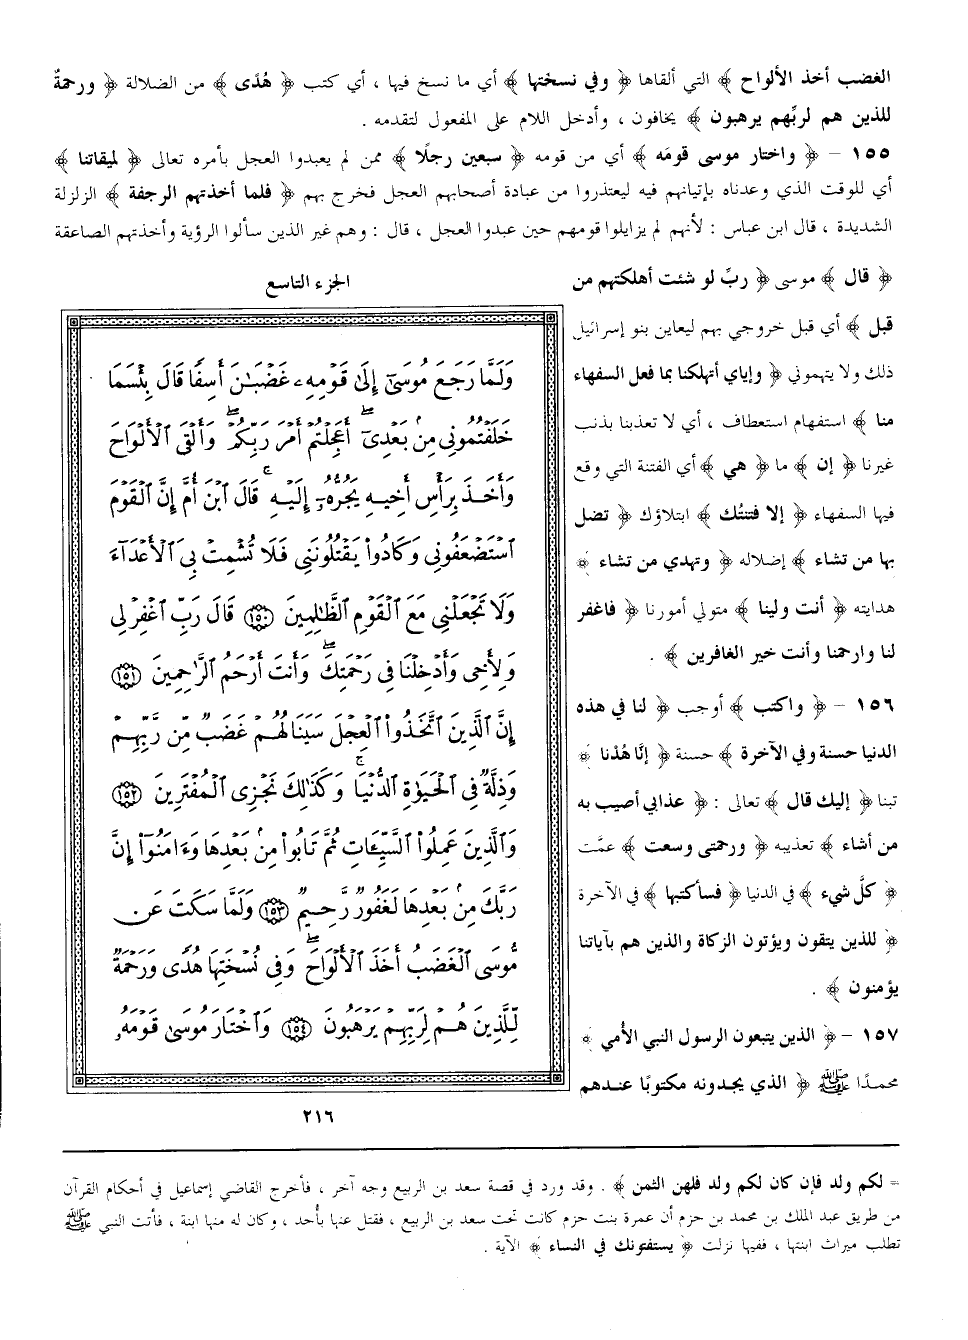 الغضب أخذ الألواح ﴾ التي ألقاها ﴿ وفي نسختها ﴾ أي ما نسخ فيها ، أي كتب ﴿ هُدًى ﴾ من الضلالة ﴿ ورحمةٌ
للذين هم لربِّهم يرهبون ﴾ يخافون ، وأدخل اللام على المفعول لتقدمه .
١٥٥ - ﴿ واختار موسى قومَه ﴾ أي من قومه ﴿ سبعين رجلًا ﴾ ممن لم يعبدوا العجل بأمره تعالى ﴿ لميقاتنا ﴾
أي للوقت الذي وعدناه بإتيانهم فيه ليعتذروا من عبادة أصحابهم العجل فخرج بهم ﴿ فلما أخذتهم الرجفة ﴾ الزلزلة
الشديدة ، قال ابن عباس : لأنهم لم يزايلوا قومهم حين عبدوا العجل ، قال : وهم غير الذين سألوا الرؤية وأخذتهم الصاعقة
﴿ قال ﴾ موسى ﴿ ربِّ لو شئت أهلكتهم من
قبل ﴾ أي قبل خروجي بهم ليعاين بنو إسرائيل
ذلك ولا يتهموني ﴿ وإياي أتهلكنا بما فعل السفهاء
منا ﴾ استفهام استعطاف ، أي لا تعذبنا بذنب
غيرنا ﴿ إن ﴾ ما ﴿ هي ﴾ أي الفتنة التي وقع
فيها السفهاء ﴿ إلا فتنتُك ﴾ ابتلاؤك ﴿ تضل
بها من تشاء ﴾ إضلاله ﴿ وتهدي من تشاء ﴾
هدايته ﴿ أنت ولينا ﴾ متولي أمورنا ﴿ فاغفر
لنا وارحمنا وأنت خير الغافرين ﴾ .
١٥٦ - ﴿ واكتب ﴾ أوجب ﴿ لنا في هذه
الدنيا حسنة وفي الآخرة ﴾ حسنة ﴿ إنَّا هُدْنا ﴾
تبنا ﴿ إليك قال ﴾ تعالى : ﴿ عذابي أصيب به
من أشاء ﴾ تعذيبه ﴿ ورحمتي وسعت ﴾ عمَّت
﴿ كلَّ شيء ﴾ في الدنيا ﴿ فسأكتبها ﴾ في الآخرة
﴿ للذين يتقون ويؤتون الزكاة والذين هم بآياتنا
يؤمنون ﴾ .
١٥٧ - ﴿ الذين يتبعون الرسول النبي الأمي ﴾
محمدًا ﷺ ﴿ الذي يجدونه مكتوبًا عندهم
الجزء التاسع
وَلَمَّا رَجَعَ مُوسَىٰٓ إِلَىٰ قَوْمِهِۦ غَضْبَٰنَ أَسِفًا قَالَ بِئْسَمَا
خَلَفْتُمُونِى مِنۢ بَعْدِىٓ ۖ أَعَجِلْتُمْ أَمْرَ رَبِّكُمْ ۖ وَأَلْقَى ٱلْأَلْوَاحَ
وَأَخَذَ بِرَأْسِ أَخِيهِ يَجُرُّهُۥٓ إِلَيْهِ ۚ قَالَ ٱبْنَ أُمَّ إِنَّ ٱلْقَوْمَ
ٱسْتَضْعَفُونِى وَكَادُوا۟ يَقْتُلُونَنِى فَلَا تُشْمِتْ بِىَ ٱلْأَعْدَآءَ
وَلَا تَجْعَلْنِى مَعَ ٱلْقَوْمِ ٱلظَّٰلِمِينَ ١٥٠ قَالَ رَبِّ ٱغْفِرْ لِى
وَلِأَخِى وَأَدْخِلْنَا فِى رَحْمَتِكَ ۖ وَأَنتَ أَرْحَمُ ٱلرَّٰحِمِينَ ١٥١
إِنَّ ٱلَّذِينَ ٱتَّخَذُوا۟ ٱلْعِجْلَ سَيَنَالُهُمْ غَضَبٌ مِّن رَّبِّهِمْ
وَذِلَّةٌ فِى ٱلْحَيَوٰةِ ٱلدُّنْيَا ۚ وَكَذَٰلِكَ نَجْزِى ٱلْمُفْتَرِينَ ١٥٢
وَٱلَّذِينَ عَمِلُوا۟ ٱلسَّيِّـَٔاتِ ثُمَّ تَابُوا۟ مِنۢ بَعْدِهَا وَءَامَنُوٓا۟ إِنَّ
رَبَّكَ مِنۢ بَعْدِهَا لَغَفُورٌ رَّحِيمٌ ١٥٣ وَلَمَّا سَكَتَ عَن
مُّوسَى ٱلْغَضَبُ أَخَذَ ٱلْأَلْوَاحَ ۖ وَفِى نُسْخَتِهَا هُدًى وَرَحْمَةٌ
لِّلَّذِينَ هُمْ لِرَبِّهِمْ يَرْهَبُونَ ١٥٤ وَٱخْتَارَ مُوسَىٰ قَوْمَهُۥ
٢١٦
= لكم ولد فإن كان لكم ولد فلهن الثمن ﴾ . وقد ورد في قصة سعد بن الربيع وجه آخر ، فأخرج القاضي إسماعيل في أحكام القرآن
من طريق عبد الملك بن محمد بن حزم أن عمرة بنت حزم كانت تحت سعد بن الربيع ، فقتل عنها بأُحد ، وكان له منها ابنة ، فأتت النبي ﷺ
تطلب ميراث ابنتها ، ففيها نزلت ﴿ يستفتونك في النساء ﴾ الآية .